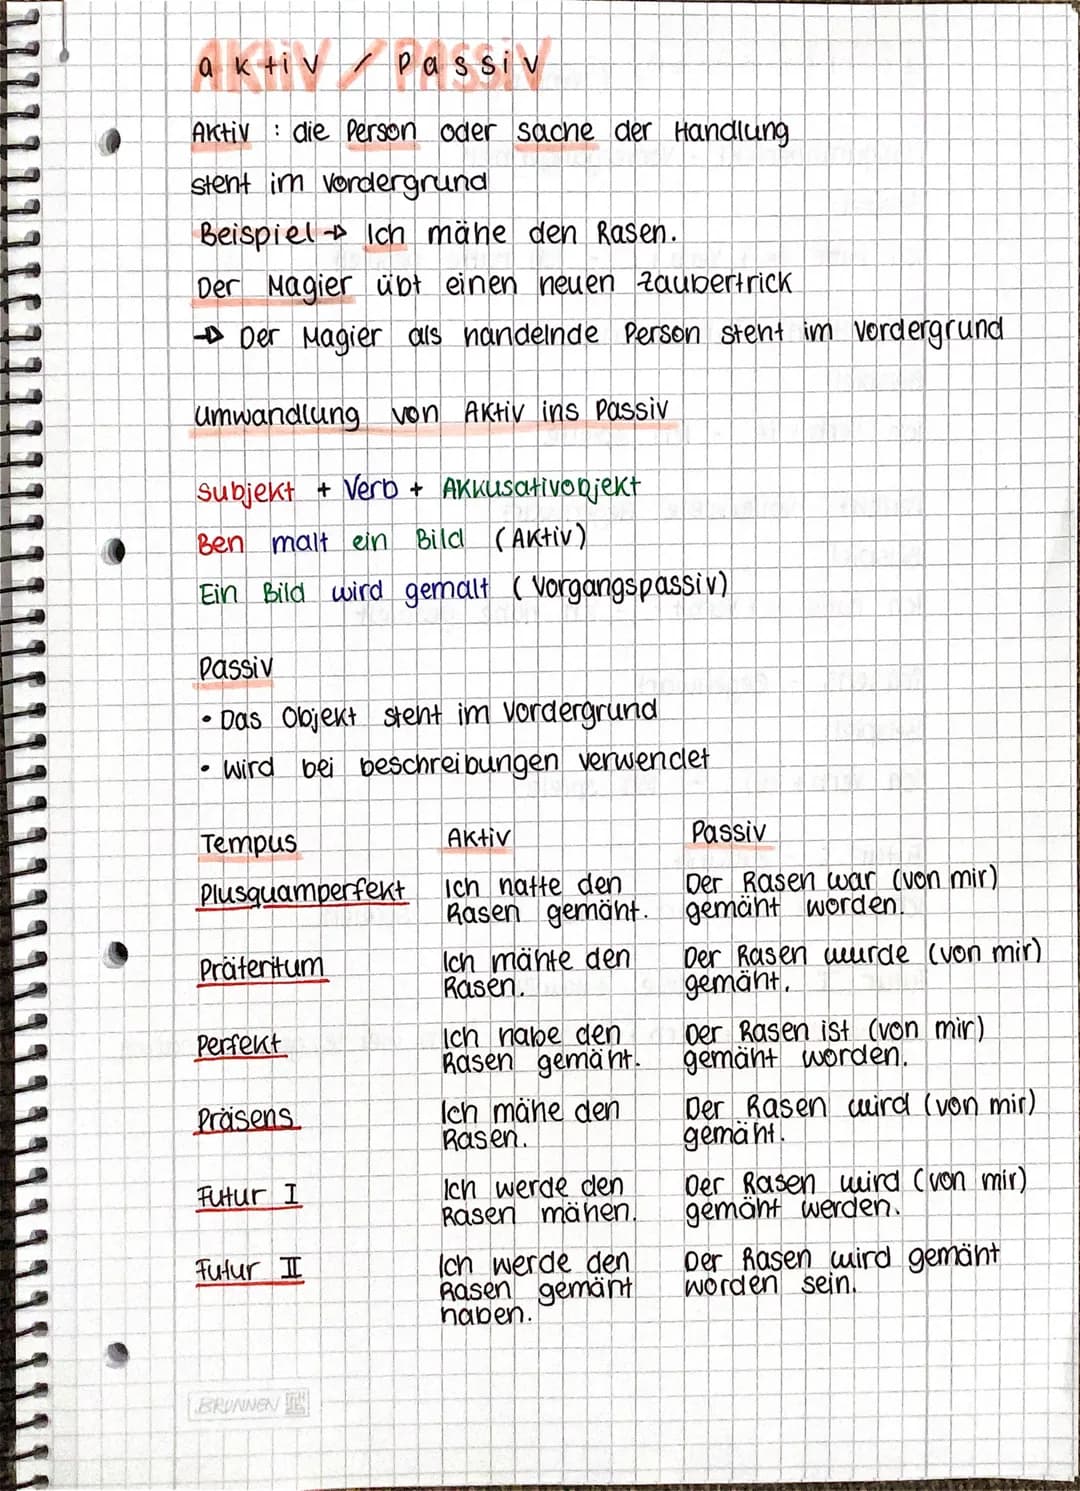 aktiv / Passiv
Aktiv : die Person oder Sache der Handlung
steht im Vordergrund
Beispiel → Ich mähe den Rasen.
Der Magier übt einen neuen Zaubertrick
→ Der Magier als handelnde Person steht im Vordergrund
Umwandlung von Aktiv ins Passiv
Subjekt + Verb + Akkusativobjekt
Ben malt ein Bild (Aktiv)
Ein Bild wird gemalt (Vorgangspassiv)
Passiv
• Das Objekt steht im Vordergrund
• wird bei beschreibungen verwendet
Tempus Aktiv Passiv
Plusquamperfekt Ich hatte den Der Rasen war (von mir)
Rasen gemäht. gemäht worden.
Präteritum Ich mähte den Der Rasen wurde (von mir)
Rasen. gemäht.
Perfekt Ich habe den Der Rasen ist (von mir)
Rasen gemäht. gemäht worden.
Präsens Ich mähe den Der Rasen wird (von mir)
Rasen. gemäht.
Futur I Ich werde den Der Rasen wird (von mir)
Rasen mähen. gemäht werden.
Futur II Ich werde den Der Rasen wird gemäht
Rasen gemäht worden sein.
haben.
BRUNNEN